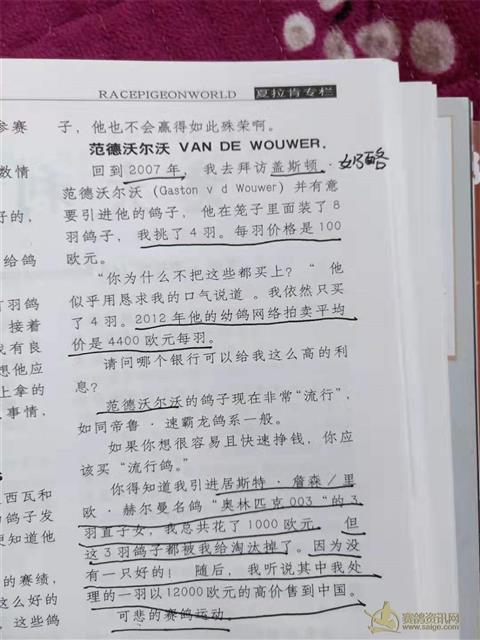 RACEPIGEONWORLD 夏拉肯专栏
参赛
子，他也不会赢得如此殊荣啊。
范德沃尔沃 VAN DE WOUWER.
数情
回到 2007 年，我去拜访盖斯顿·
奶酪
范德沃尔沃（Gaston v d Wouwer）并有意
好的，
要引进他的鸽子，他在笼子里面装了 8
羽鸽子，我挑了 4 羽。每羽价格是 100
给鸽
欧元。
“你为什么不把这些都买上？“ 他
似乎用恳求我的口气说道 。我依然只买
打羽鸽
接着
了 4 羽。2012 年他的幼鸽网络拍卖平均
我有良
价是 4400 欧元每羽。
想他应
请问哪个银行可以给我这么高的利
上拿的
息？
事情，
范德沃尔沃的鸽子现在非常“流行”，
如同帝鲁·速霸龙鸽系一般。
如果你想很容易且快速挣钱，你应
该买“流行鸽。”
西瓜和
你得知道我引进居斯特·詹森／里
的鸽子发
欧·赫尔曼名鸽“奥林匹克 003 “的 3
更知道他
羽直子女，我总共花了 1000 欧元。 但
这 3 羽鸽子都被我给淘汰掉了。因为没
的赛绩，
有一只好的！ 随后，我听说其中我处
这么好的
理的一羽以 12000 欧元的高价售到中国。
，这些鸽
可悲的赛鸽运动。
赛鸽资讯网
www.saige.com